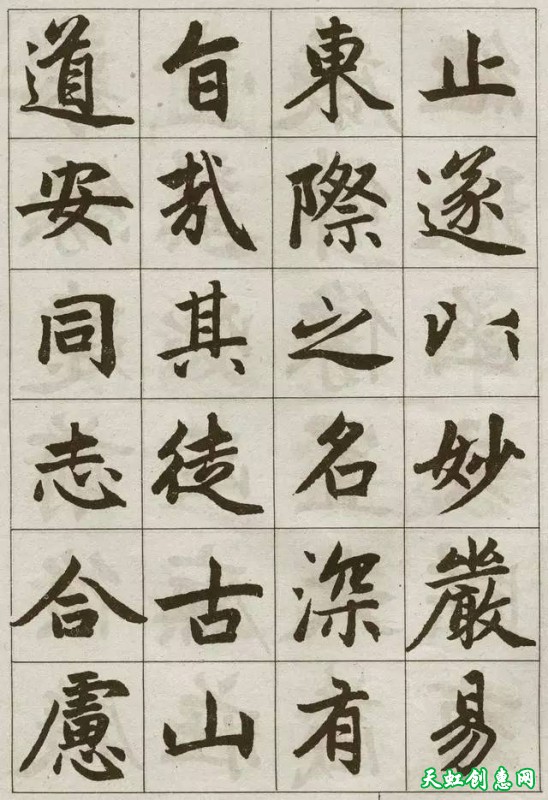 止遂以妙嚴易
東際之名深有
旨哉其徒古山
道安同志合慮
天虹创惠网